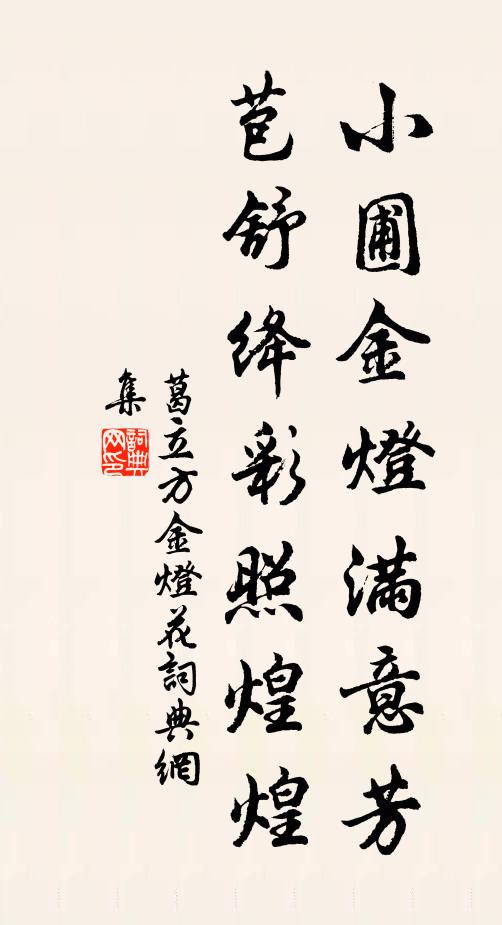 小圃金燈滿意芳
苞舒絳彩照煌煌
葛立方金燈花詞典網
集
詞典網印